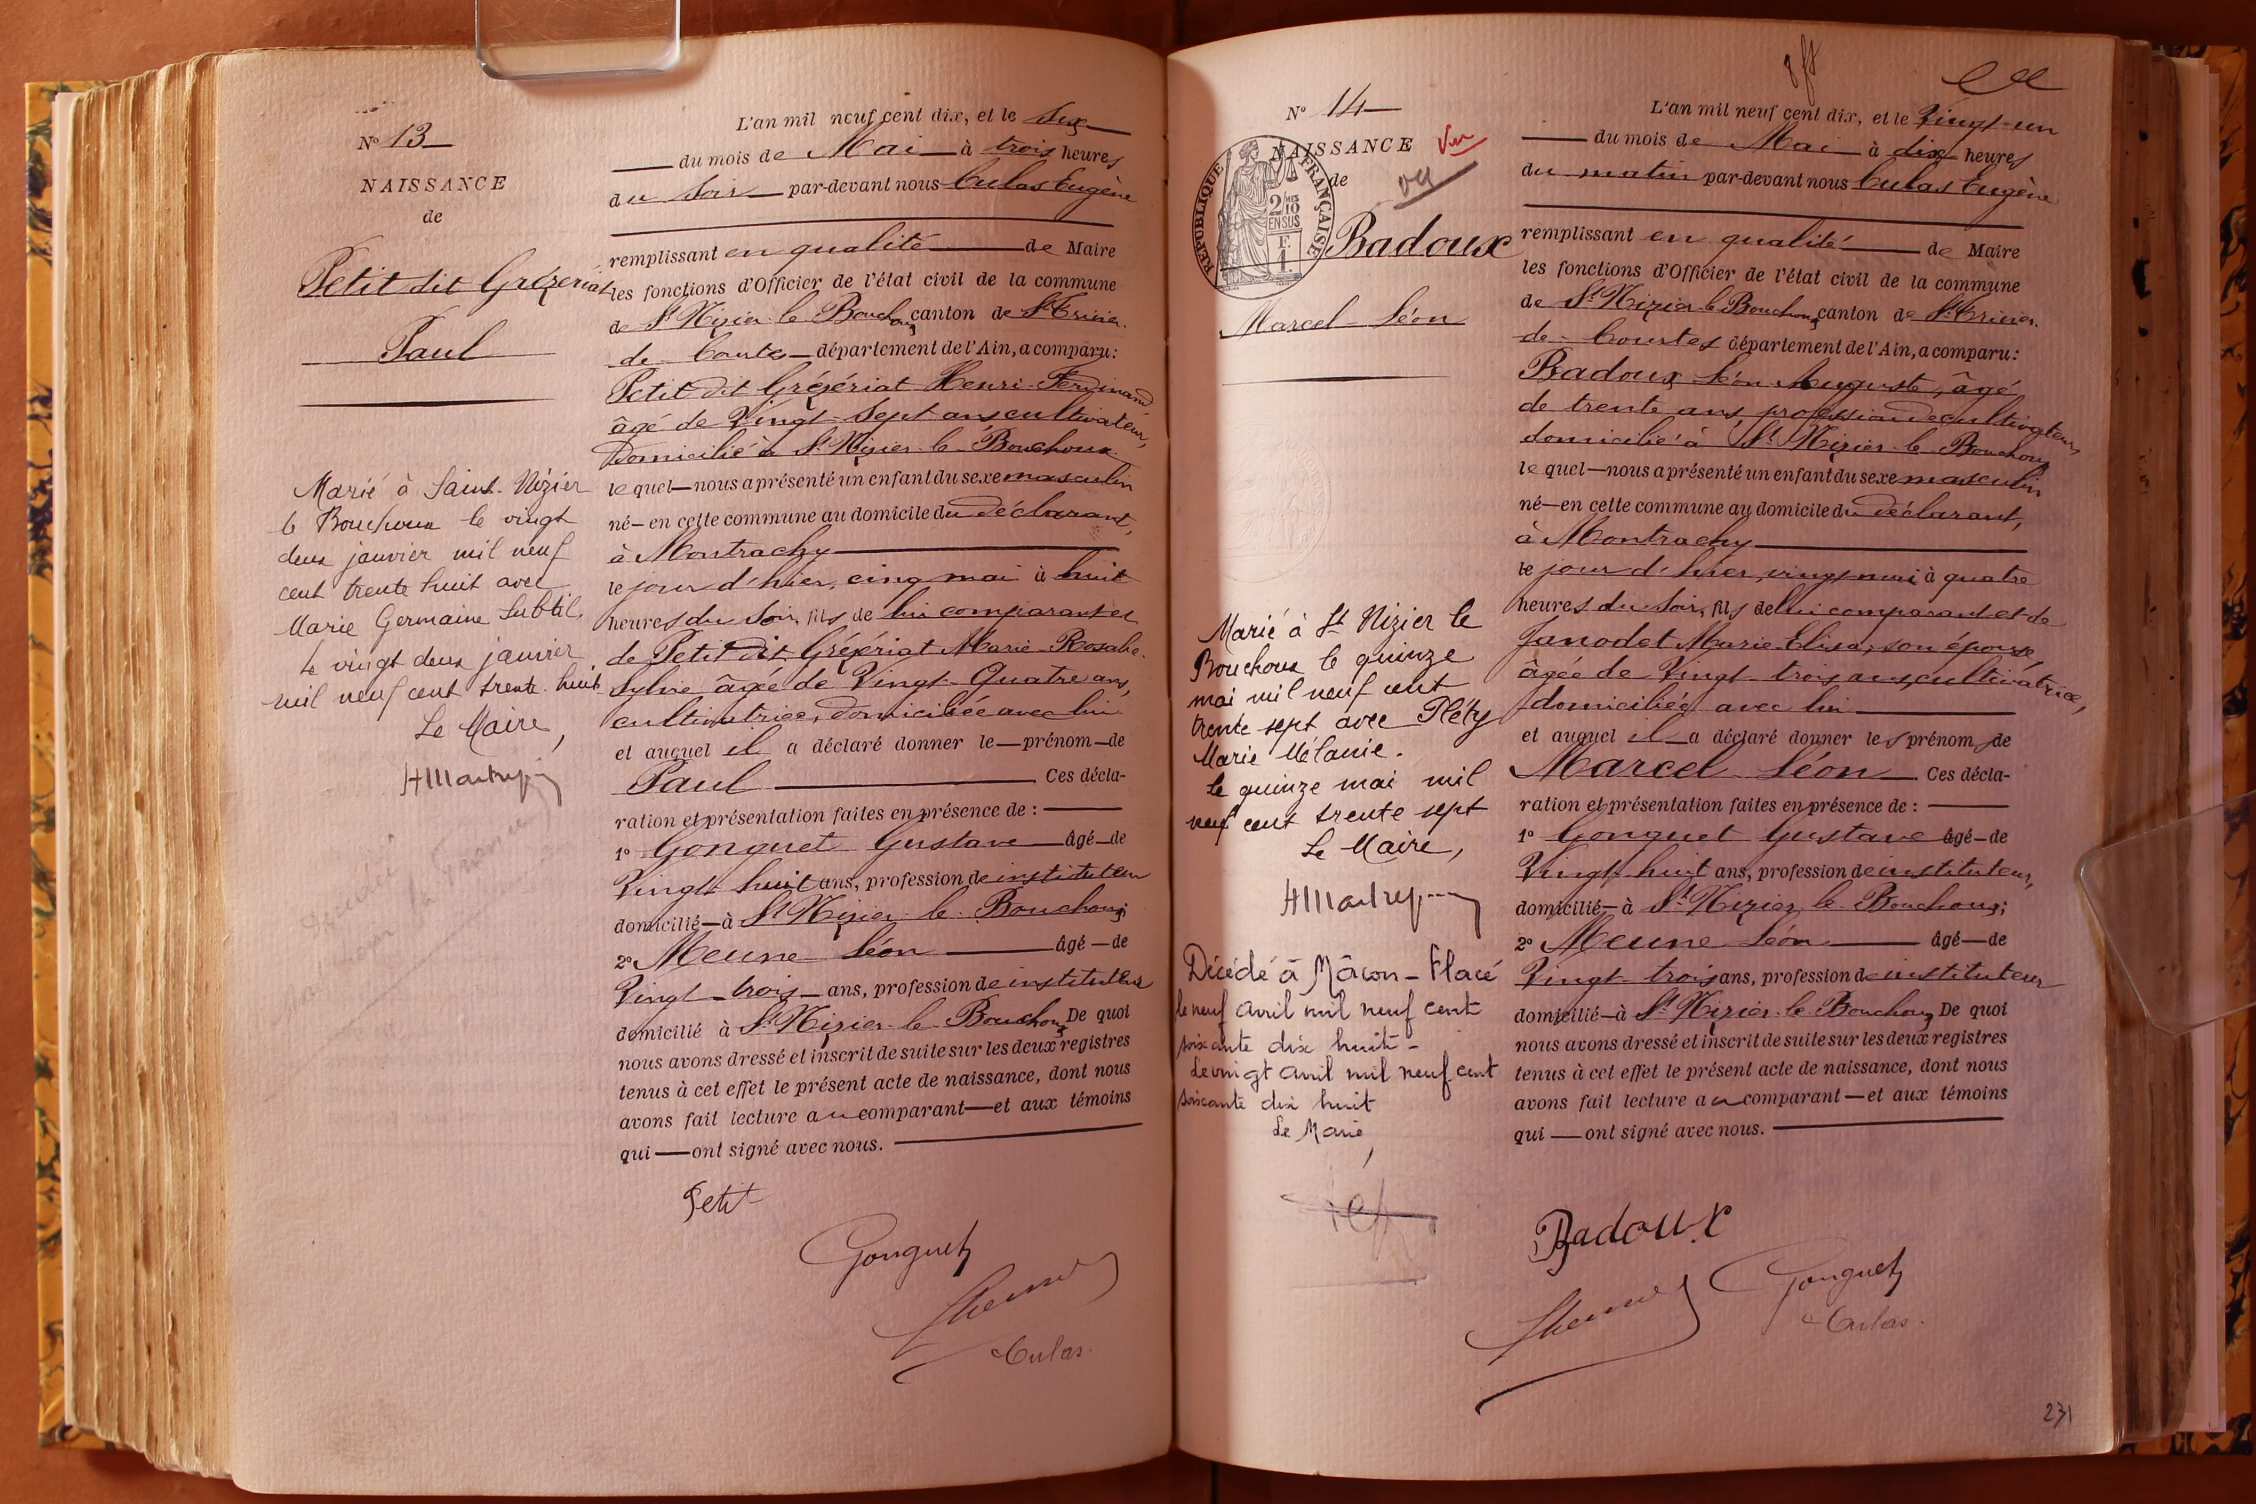 N° 13
NAISSANCE
de
Petit dit Grézeriat
Paul
Marié à Saint-Nizier
le Bouchoux le vingt
deux janvier mil neuf
cent trente huit avec
Marie Germaine Subtil.
Le vingt deux janvier
mil neuf cent trente huit
Le Maire,
L'an mil neuf cent dix, et le Six
du mois de Mai à trois heures
du Soir par-devant nous Culas Eugène
remplissant en qualité de Maire
les fonctions d'Officier de l'état civil de la commune
de St Nizier-le-Bouchoux canton de St Trivier-
de-Courtes département de l'Ain, a comparu:
Petit dit Grézériat Henri-Ferdinand
âgé de Vingt-Sept ans cultivateur,
Domicilié à St Nizier-le-Bouchoux
lequel nous a présenté un enfant du sexe masculin
né en cette commune au domicile du déclarant,
à Montrachy
le jour d'hier, cinq mai à huit
heures du Soir, fils de lui comparant et
de Petit dit Grézériat Marie-Rosalie-
Sylvie âgée de Vingt-Quatre ans,
cultivatrice, domiciliée avec lui
et auquel il a déclaré donner le prénom de
Paul Ces décla-
ration et présentation faites en présence de :
1° Gonguet Gustave âgé de
Vingt huit ans, profession de instituteur
domicilié à St Nizier-le-Bouchoux;
2° Meune Léon âgé de
Vingt-trois ans, profession de instituteur
domicilié à St Nizier-le-Bouchoux De quoi
nous avons dressé et inscrit de suite sur les deux registres
tenus à cet effet le présent acte de naissance, dont nous
avons fait lecture au comparant et aux témoins
qui ont signé avec nous.
Petit
Gonguet
Culas
N° 14
NAISSANCE
Vu
de
RÉPUBLIQUE FRANÇAISE
2/10 EN SUS
Badoux
Marcel-Léon
Marié à St Nizier le
Bouchoux le quinze
mai mil neuf cent
trente sept avec Pléty
Marie Mélanie.
Le quinze mai mil
neuf cent trente sept
Le Maire,
Décédé à Mâcon-Flacé
le neuf avril mil neuf cent
soixante dix huit -
Le vingt avril mil neuf cent
soixante dix huit
Le Maire,
L'an mil neuf cent dix, et le Vingt-un
du mois de Mai à dix heures
du matin par-devant nous Culas Eugène
remplissant en qualité de Maire
les fonctions d'Officier de l'état civil de la commune
de St Nizier-le-Bouchoux canton de St Trivier-
de-Courtes département de l'Ain, a comparu:
Badoux Léon Auguste, âgé
de trente ans, profession de cultivateur,
domicilié à St Nizier-le-Bouchoux
lequel nous a présenté un enfant du sexe masculin
né en cette commune au domicile du déclarant,
à Montrachy
le jour d'hier, vingt mai à quatre
heures du Soir, fils de lui comparant et de
Janodet Marie-Elisa, son épouse
âgée de Vingt-trois ans, cultivatrice,
domiciliée avec lui
et auquel il a déclaré donner les prénoms de
Marcel Léon Ces décla-
ration et présentation faites en présence de :
1° Gonguet Gustave âgé de
Vingt-huit ans, profession de instituteur,
domicilié à St Nizier-le-Bouchoux;
2° Meune Léon âgé de
Vingt-trois ans, profession de instituteur
domicilié à St Nizier-le-Bouchoux De quoi
nous avons dressé et inscrit de suite sur les deux registres
tenus à cet effet le présent acte de naissance, dont nous
avons fait lecture au comparant et aux témoins
qui ont signé avec nous.
Badoux
Gonguet
Culas
231